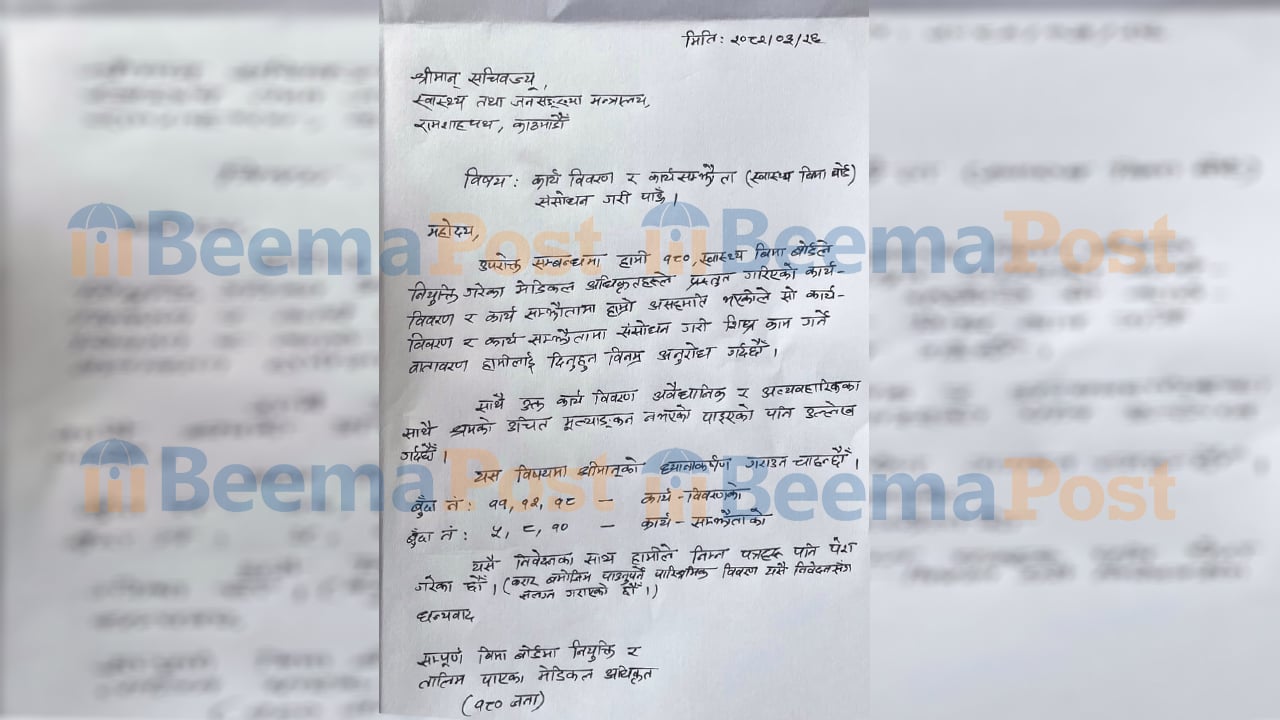 मिति: २०८२/०३/२६
श्रीमान् सचिवज्यू,
स्वास्थ्य तथा जनसङ्ख्या मन्त्रालय,
रामशाहपथ, काठमाडौं
विषय: कार्य विवरण र कार्यसम्झौता (स्वास्थ्य विमा बोर्ड)
संसोधन गरी पाऊँ।
महोदय,
उपरोक्त सम्बन्धमा हामी १८०, स्वास्थ्य विमा बोर्डले
नियुक्ति गरेका मेडिकल अधिकृतहरूले प्रस्तुत गरिएको कार्य-
विवरण र कार्य सम्झौतामा हाम्रो असहमति भएकोले सो कार्य-
विवरण र कार्य सम्झौतामा संसोधन गरी शिघ्र काम गर्ने
वातावरण हामीलाई दिनुहुन विनम्र अनुरोध गर्दछौं।
साथै उक्त कार्य विवरण अवैधानिक र अव्यवहारिकका
साथै श्रमको उचित मूल्याङ्कन नभएको पाइएको पनि उल्लेख
गर्दछौं।
यस विषयमा श्रीमान्‌को ध्यानाकर्षण गराउन चाहन्छौं।
बुँदा नं: ११, १२, १८ — कार्य-विवरणको
बुँदा नं: ५, ८, १० — कार्य-सम्झौताको
यसै निवेदनका साथ हामीले निम्न पत्रहरू पनि पेश
गरेका छौं। (करार बमोजिम पाउनुपर्ने पारिश्रमिक विवरण यसै निवेदनसंग
संलग्न गराएको छौं।)
धन्यवाद
सम्पूर्ण विमा बोर्डमा नियुक्ति र
तालिम पाएका मेडिकल अधिकृत
(१८० जना)
BeemaPost
BeemaPost
BeemaPost
BeemaPost